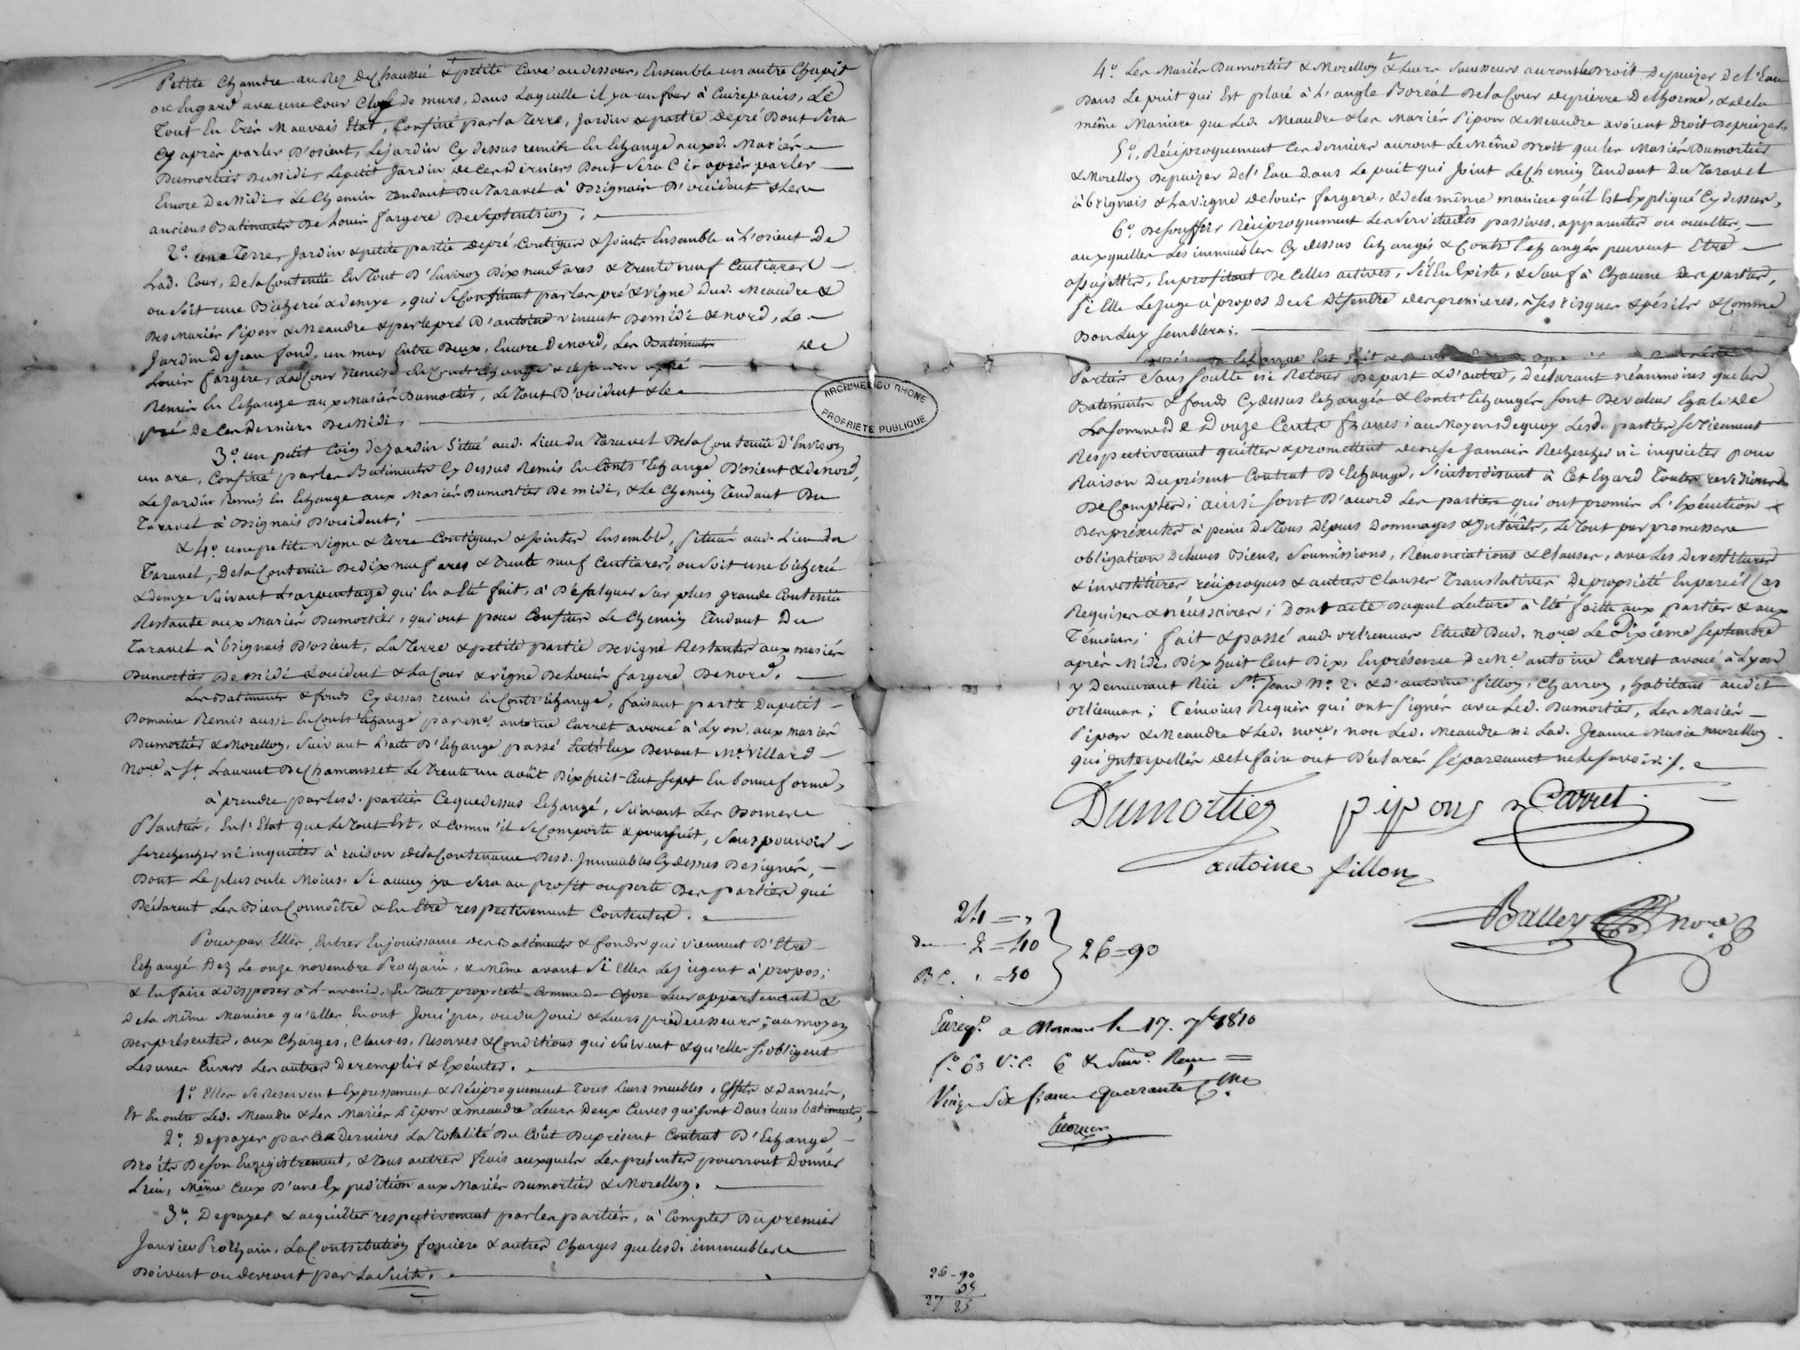 Petite Chambre au Rez de Chaussée & petite Cave au dessous, Ensemble un autre Chapit
ou Engard avec une Cour Close de murs, dans Laquelle il ya un four à Cuire pains, Le
Tout En Très Mauvais Etat, Confiné par la Terre, Jardin & partie de pré Dont Sera
Cy après parler D'orient, Le jardin Cy dessus remis En Echange auxd. Mariés
Dumortier De Midi, Le petit Jardin de Ces derniers Dont Sera Ci après parler
Encore De Midi, Le Chemin Tendant Du Taravel à Brignais D'occident & Les
anciens Batiments De Louis fargere De Septentrion;
2.° une Terre, Jardin & petite partie de pré Contigus & Joints Ensemble à L'orient De
Lad. Cour, De la Contenüe En Tout D'Environ Dix neuf ares & Trente neuf Centiares
ou Soit une Bicherée & demye, qui Se Confinent par Les pré & vigne Dud. Meaudre &
Des Mariés Pipon & Meaudre & par le pré D'antoine vincent De midi & nord, Le
Jardin De Jean fond, un mur Entre Deux, Encore De nord, Les Batiments de
Louis fargère, La d. Cour Remise En Contr'Echange & Le Jardin & pré
Remis En Echange aux Mariés Dumortier, Le Tout D'occident & Le
pré De Ces Derniers De Midi.
3.° un petit Coin de Jardin Situé aud. Lieu du Taravel De la Contenüe D'Environ
un are, Confiné par Les Batiments Cy Dessus Remis En Contr'Echange D'orient & De nord,
Le Jardin Remis En Echange aux Mariés Dumortier De midi, & Le Chemin Tendant Du
Taravel à Brignais D'occident;
& 4.° une petite vigne & Terre Contigues & jointes Ensemble, Situées aud. Lieu du
Taravel, De la Contenüe De Dix neuf ares & Trente neuf Centiares, ou Soit une bicherée
& demye Suivant L'arpentage qui En a Eté fait, à Défalquer Sur plus grande Contenüe
Restante aux Mariés Dumortier, qui ont pour Confins Le Chemin Tendant Du
Taravel à brignais D'orient, La Terre & petite partie De vigne Restantes aux mariés
Dumortier De midi & occident & La Cour & vigne De Louis fargere De nord.
Les Batiments & fonds Cy dessus remis En Contr'Echange, faisant partie Du petit
Domaine Remis aussi En Contr'Echange par me. antoine Carret avoué à Lyon aux mariés
Dumortier & Morellon, Suivant L'acte D'Echange passé Entr'Eux Devant Me. Villard
Nore. à St. Laurent De Chamousset Le Trente un août Dix huit-Cent Sept En bonne forme,
à prendre par Lesd. parties Ce que dessus Echangé, Suivant Les Bornes
Plantées, En L'Etat que Le Tout Est, & Comm'il Se Comporte & poursuit, Sans pouvoir
Se rechercher ni inquieter à raison de la Contenance Desd. Immeubles Cy dessus Designés,
Dont Le plus ou Le Moins, Si aucun y a Sera au profit ou perte Des parties qui
Déclarent Les Bien Connoître & En Etre respectivement Contentes.
Pour par Elles, Entrer En jouissance des Batiments & fonds qui viennent D'Etre
Echangés Dez Le onze novembre Prochain, & Même avant Si Elles Le jugent à propos;
& En faire & disposer à L'avenir, En Toute propriété Comme De Chose Leur appartenant &
De la Même Manière qu'elles En ont Joui pu, ou du Jouir & Leurs prédécesseurs; au moyen
Des présentes, aux Charges, Clauses, Reserves & Conditions qui Suivent & qu'elles S'obligent
Les unes Envers Les autres De remplir & Exécuter.
1.° Elles Se Reservent Expressement & Réciproquement Tous Leurs meubles, Effets & Danrées,
Et En outre Led. Meaudre & Les Mariés Pipon & meaudre Leurs Deux Cuves qui Sont Dans Leurs batiments;
2.° De payer par Ces Derniers La Totalité Du Coût Du présent Contrat D'Echange
Droits De Son Enregistrement, & Tous autres frais auxquels Les présentes pourront Donner
Lieu, Même Ceux D'une Expedition aux Mariés Dumortier & Morellon.
3.° De payer & acquitter respectivement par Les parties, à Compter Du premier
Janvier Prochain, La Contribution foncière & autres Charges que Lesd. immeubles
Doivent ou devront par La Suite.
4.° Les Mariés Dumortier & Morellon & Leurs Successeurs auront Le Droit De puizer De L'Eau
Dans Le puit qui Est placé à L'angle Boréal De la Cour de pierre Delhorme, & de la
même Maniere que Led. Meaudre & Les Mariés Pipon & Meaudre avoient Droit De puizer,
5.°, Réciproquement Ces derniers auront Le Même Droit que Les Mariés Dumortier
& Morellon De puizer De L'Eau Dans Le puit qui Joint Le Chemin Tendant Du Taravel
à brignais & La vigne de Louis fargere, & de la même maniere qu'il Est Expliqué Cy dessus,
6.° De Souffrir Réciproquement Les Servitudes passives, apparentes ou occultes,
auxquelles Les immeubles Cy dessus Echangés & Contr'Echangés peuvent Etre
assujettis, En profitant De Celles actives, S'il En Existe, & Sauf à Chacune Des parties,
Si Elle Le juge à propos De Se Défendre des premieres, à Ses risques & périls & Comme
Bon Luy Semblera;
Le présent Echange Est fait
Parties Sans Soulte ni Retour De part & d'autre, Déclarant néanmoins que Les
Batiments & fonds Cy dessus Echangés & Contr'Echangés Sont De valeur Egale De
La Somme De Douze Cents francs; au Moyen de quoy Lesd. parties Se Tiennent
Respectivement quittes & promettent de ne Se Jamais Rechercher ni inquieter pour
Raison Du présent Contrat D'Echange, S'interdisant à Cet Egard Toutes
De Comptes; ainsi Sont D'accord Les parties qui ont promis L'Exécution
Des présentes à peine De Tous Dépens Dommages & Intérêts, Le Tout par promesses
obligation De Leurs Biens, Soumissions, Renonciations & Clauses, avec Les Devestitures
& investitures réciproques & autres Clauses Translatives De propriété En pareil Cas
Requises & nécessaires; Dont acte Duquel Lecture à Eté faitte aux parties & aux
Témoins; fait & passé aud. orlienas Etude Dud. nore. Le Dixième Septembre
après Midi, Dix huit Cent Dix, En présence De Me. antoine Carret avoué à Lyon
y Demeurant Rüe St. Jean No. 2. & d'antoine fillon, Charron, habitant audit
orlienas; Témoins Requis qui ont Signés avec Led. Dumortier, Les Mariés
Pipon & Meaudre & Led. nore., non Led. Meaudre ni Lad. Jeanne Marie morellon
qui Interpellés de Le faire ont Déclaré Séparement ne Le Savoir./.
Dumortier pipons Carret
antoine fillon
Ballex nore
24 = "
2 = 40
B C. " = 50
26 = 90
Enregé. a Mornant le 17. 7bre 1810
fo. 63 V.o C. 6 & Suivt. Reçu
Vingt Six francs quarante Cmes
ARCHIVES DU RHONE
PROPRIETE PUBLIQUE
26 - 90
35
27 25